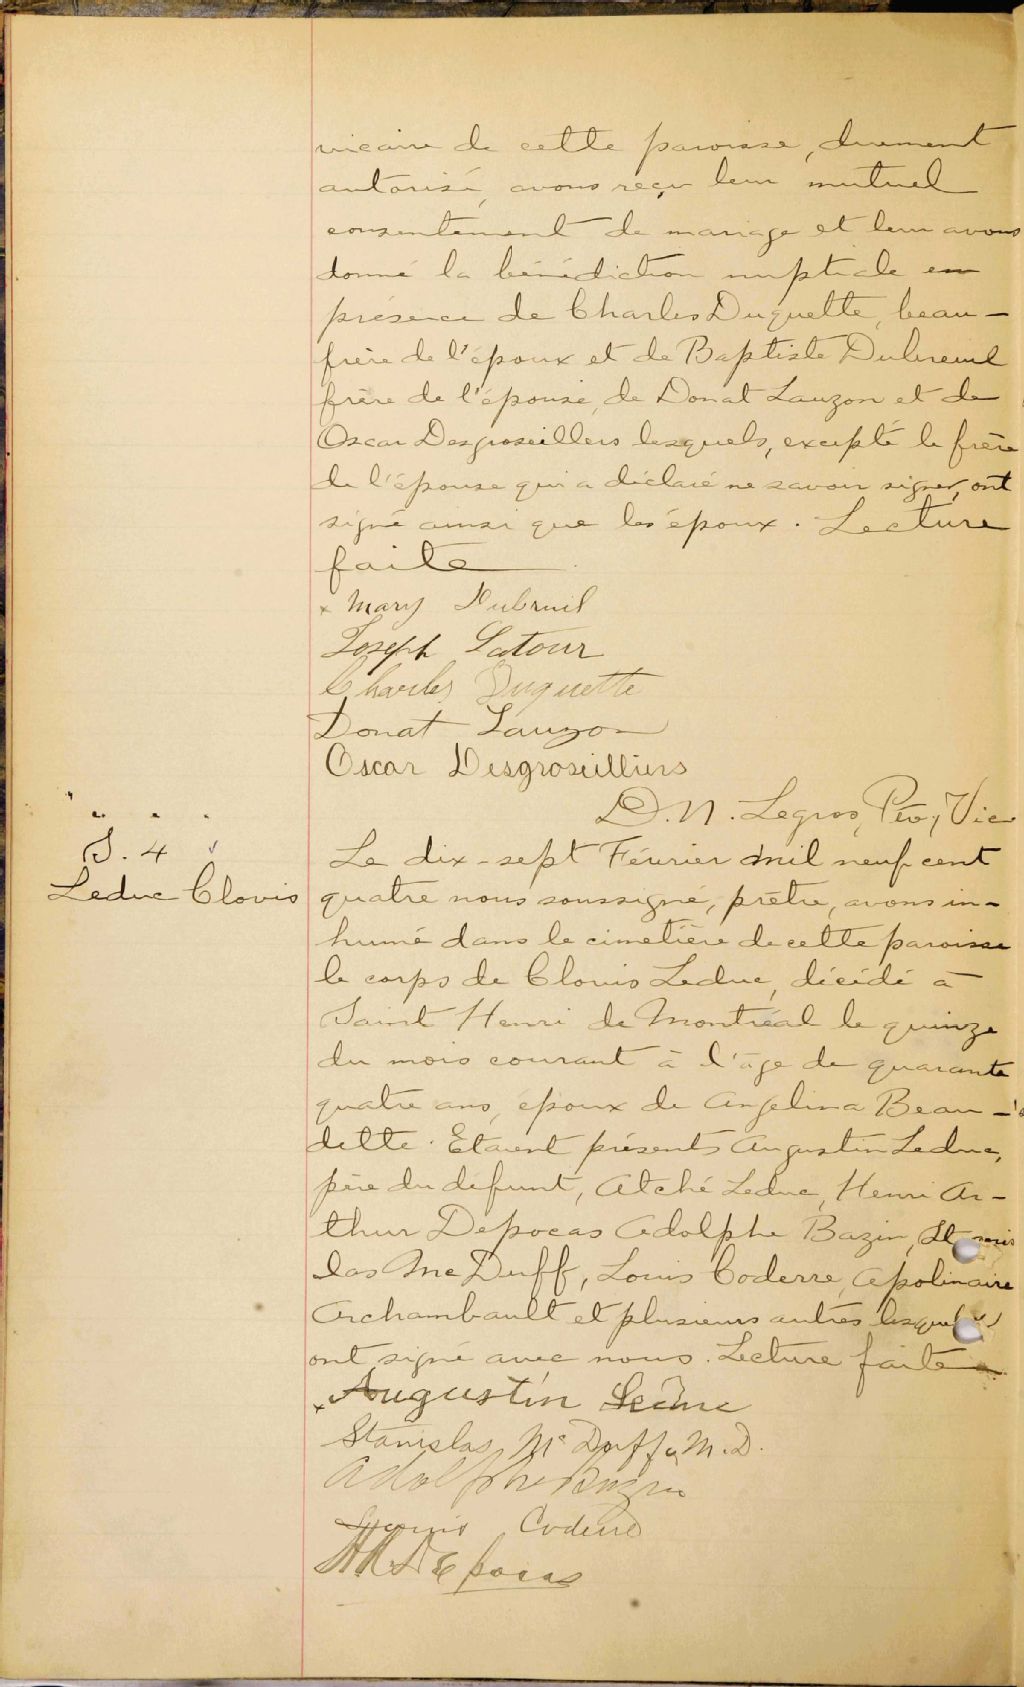 vicaire de cette paroisse, dument
autorisé, avons reçu leur mutuel
consentement de mariage et leur avons
donné la bénédiction nuptiale en
présence de Charles Duquette, beau-
frère de l'époux et de Baptiste Dubreuil
frère de l'épouse, de Donat Lauzon et de
Oscar Desgroseillers lesquels, excepté le frère
de l'épouse qui a déclaré ne savoir signer, ont
signé ainsi que les époux. Lecture
faite
x Mary Dubruil
Joseph Latour
Charles Duquette
Donat Lauzon
Oscar Desgroseilliers
D. N. Legros, Ptr, Vic
S. 4
Leduc Clovis
Le dix-sept Février mil neuf cent
quatre nous soussigné, prêtre, avons in-
humé dans le cimetière de cette paroisse
le corps de Clovis Leduc, décédé à
Saint Henri de Montréal le quinze
du mois courant à l'âge de quarante
quatre ans, époux de Angelina Beau-
dette. Etaient présents Augustin Leduc,
père du défunt, Atché Leduc, Henri Ar-
thur Depocas Adolphe Bazin,
las McDuff, Louis Coderre, Apolinaire
Archambault et plusieurs autres lesquels
ont signé avec nous. Lecture faite
x Augustin Leduc
Stanislas Mc Duff, M.D.
Adolphe Bazin
Louis Coderre
HA Depocas